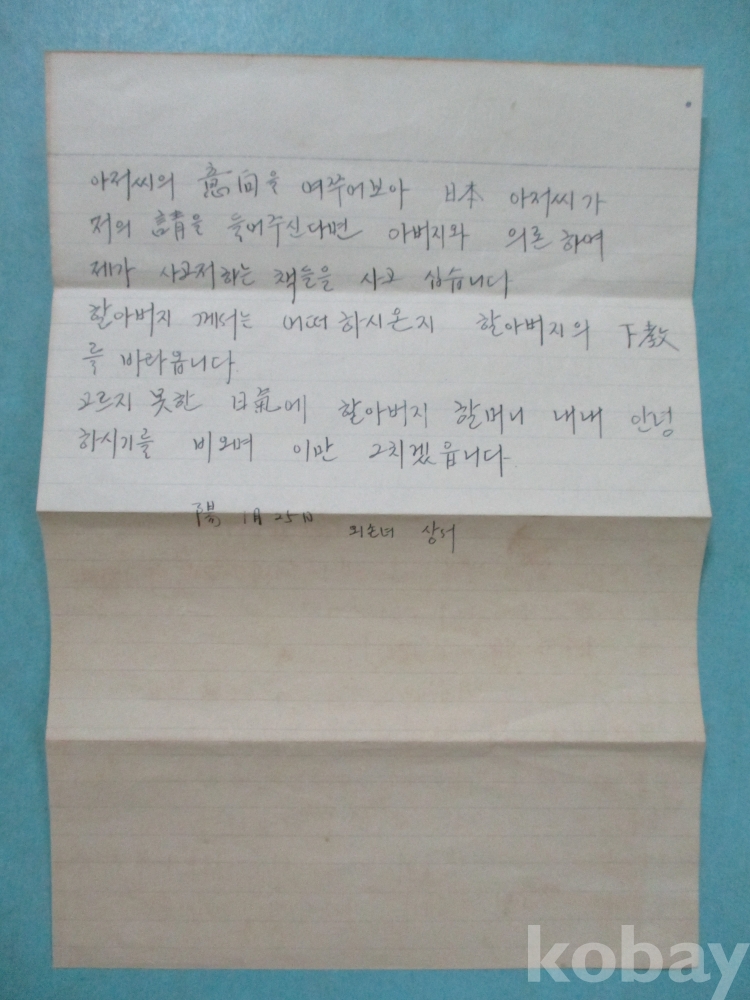 아저씨의 意向을 여쭈어보아 日本 아저씨가
저의 請을 들어주신다면 아버지와 의론하여
제가 사고저하는 책들을 사고 십습니다
할아버지 께서는 어떠하시온지 할아버지의 下敎
를 바라옵니다
고르지 못한 日氣에 할아버지 할머니 내내 안녕
하시기를 비오며 이만 그치겠읍니다
陽 1月 25日
외손녀 상서
kobay